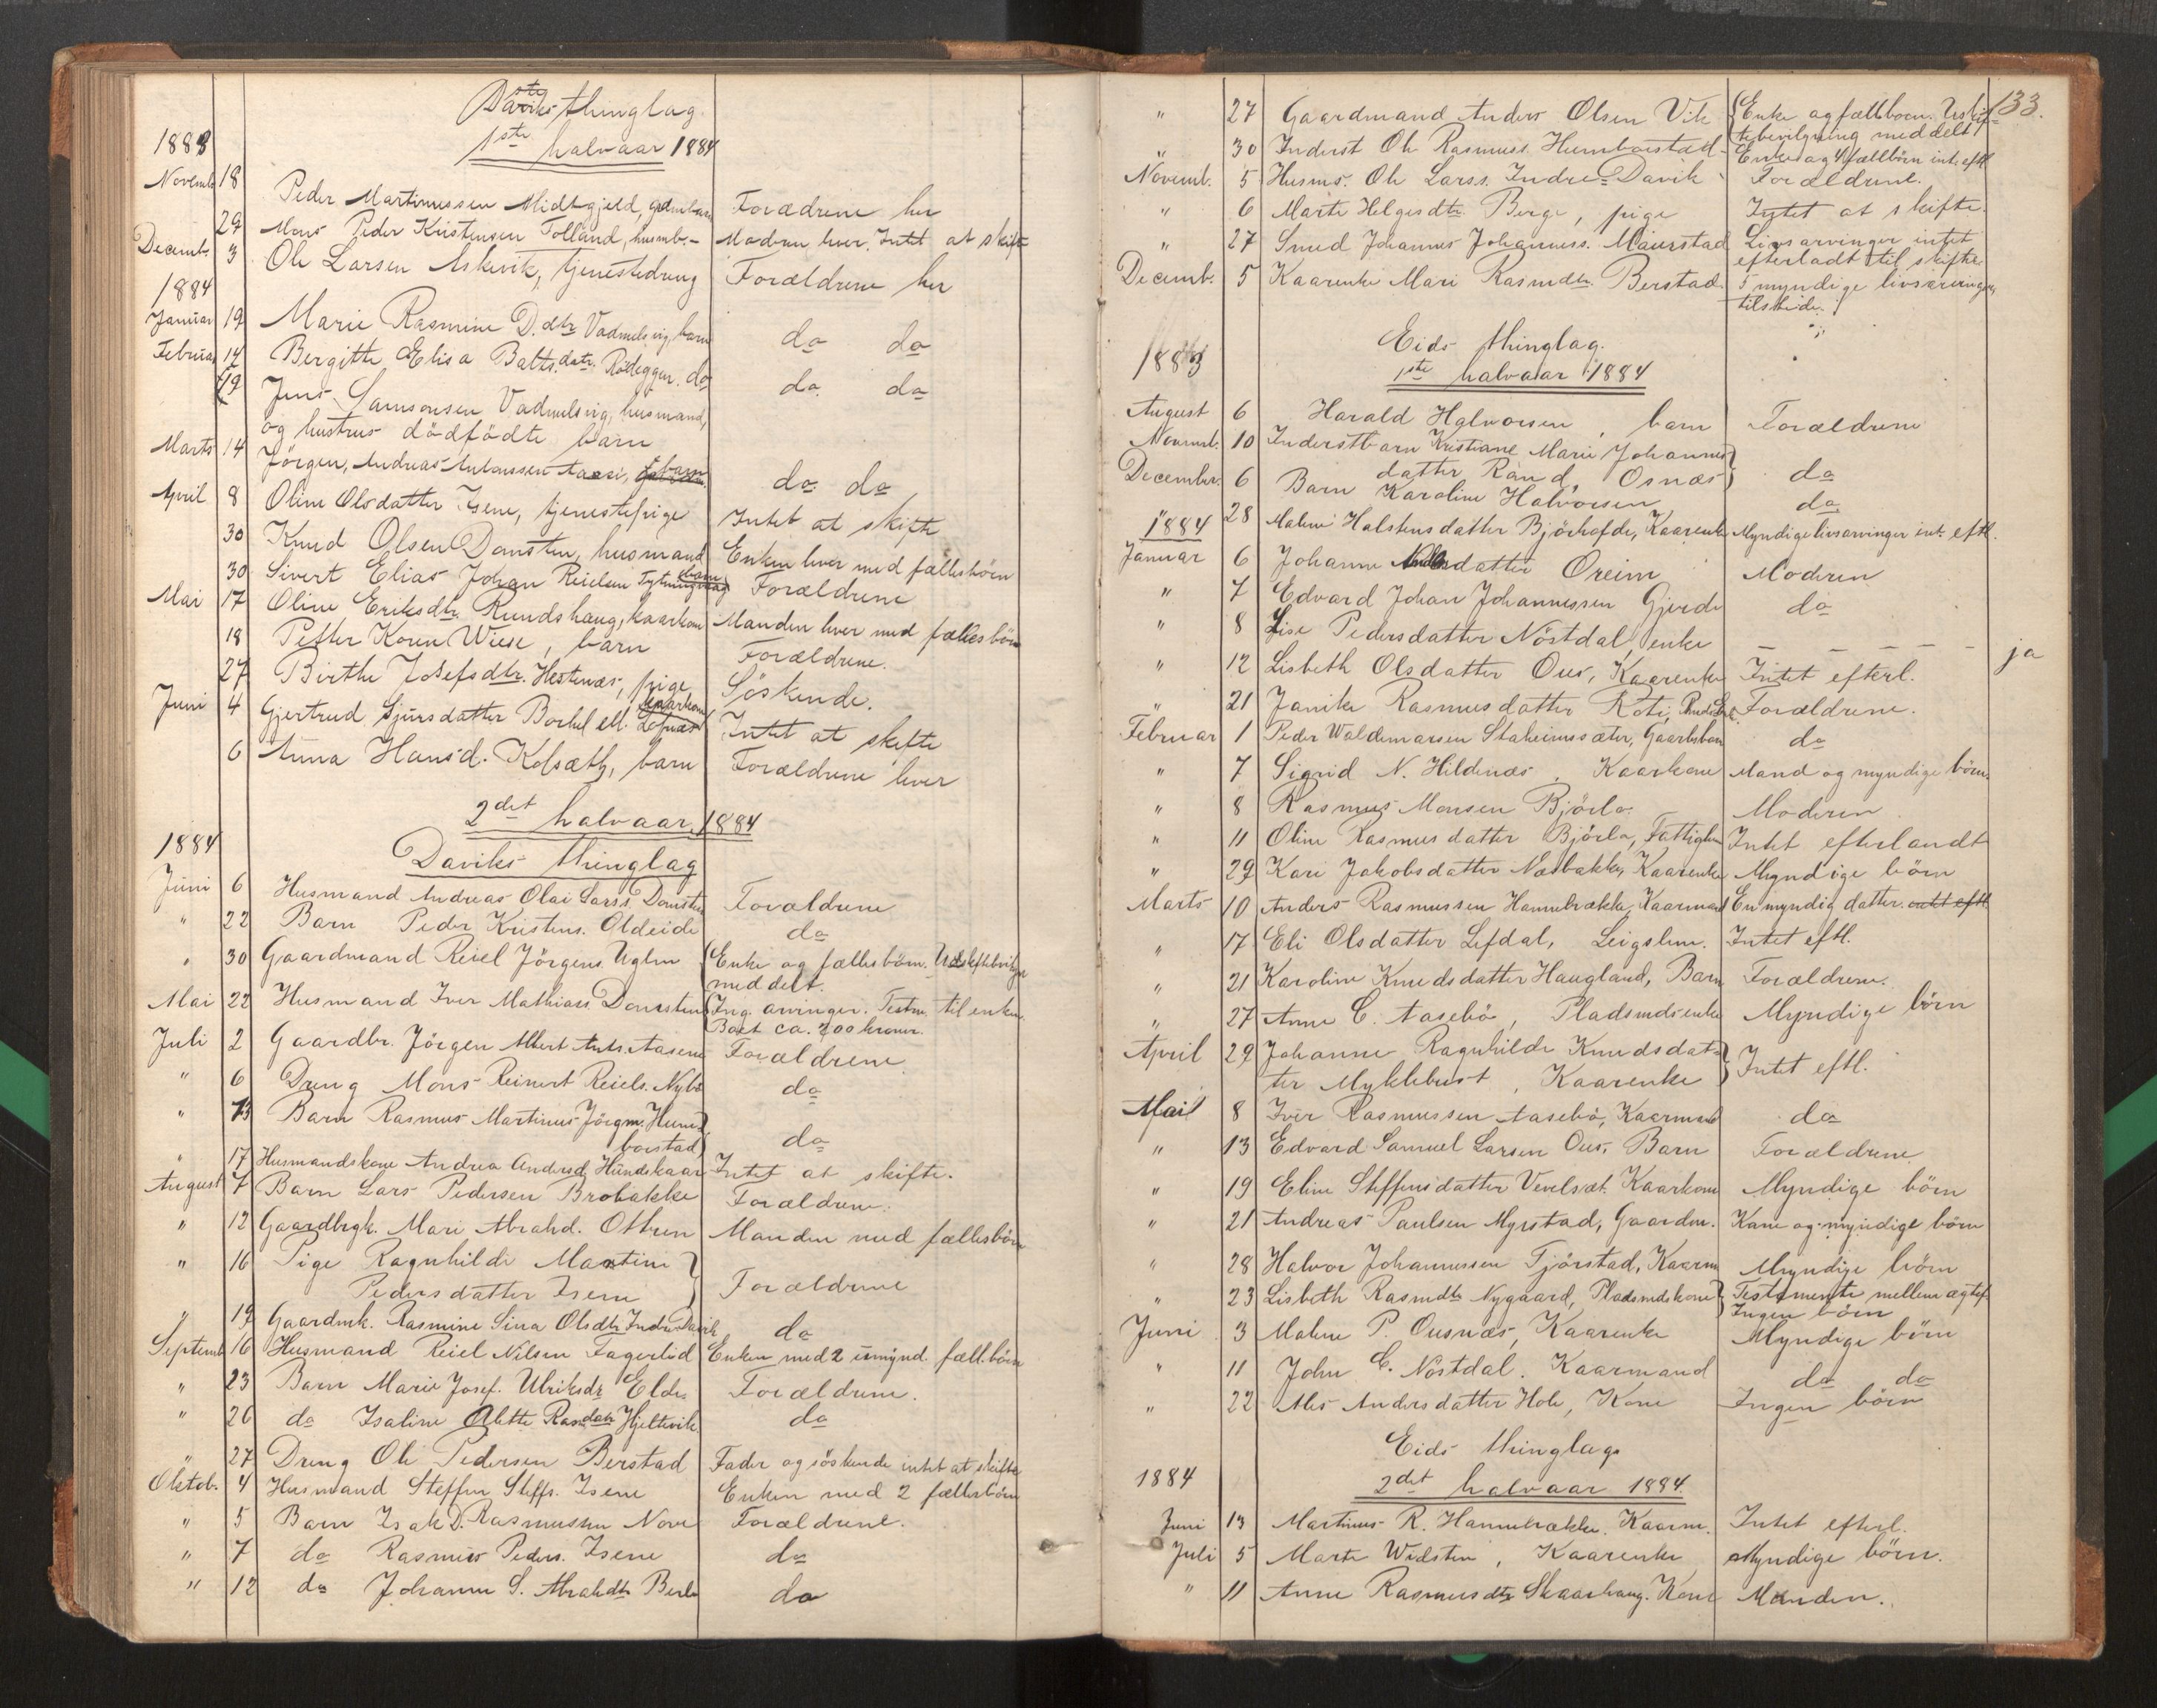 Daviks thinglag.
1ste halvaar 1884
1883
Novemb. 18 Peder Martinussen Midtgjeld, gdmbarn Forædrene lver
29 Mons Peder Kristensen Tolland, husmb. Moderen lever. Intet at skifte
Decemb. 3 Ole Larsen Askevik, tjenestedreng Forældrene lver
1884
Januar 19 Marie Rasmine D.dtr Vadmelsvig, barn do do
Februar 14 Bergitte Elisa Balts.datr. Rödeggen. do do do
19 Jens Samsonsen Vadmelsvig, husmand,
og hustrus dödfödte barn
Marts 14 Jörgen Andreas Antonssen Aasei, do do
April 8 Oline Olsdatter Isene, tjenestepige Intet at skifte
30 Knud Olsen Domsten, husmand Enken lever med fællesbörn
30 Sivert Elias Johan Reielsen barn Forældrene
Mai 17 Oline Eriksdtr. Rundshaug, kaarkone Manden lever med fælles börn
18 Petter Koren Wiese, barn Forældrene.
27 Birthe Josefsdtr. Hestenæs, pige Söskende.
Juni 4 Gjertrud Sjursdatter Borhel ell. Lefnæs kaarkone Intet at skifte
6 Anna Hansd. Kolsæth, barn Forældrene lever
2det halvaar 1884
1884
Daviks thinglag
Juni 6 Husmand Andreas Olai Larss. Domsten Forældrene
" 22 Barn Peder Kristens. Oldeide do
" 30 Gaardmand Reiel Jörgens. Uglen {Enke og fællesbörn. Uskiftebevilgn.
meddelt.
Mai 22 Husmand Iver Mathiass. Domsten {Ing. arvinger. Testm. til enken.
Boet ca. 700 kroner.
Juli 2 Gaardbr. Jörgen Albert Ants. Aasene Forældrene.
" 6 Dreng Mons Reinert Reiels. Nybö do
" 13 Barn Rasmus Martinus Jörgns. Hum-}
borstad} do
" 17 Husmandskone Andrea Andersd. Hundskaar Intet at skifte.
August 7 Barn Lars Pedersen Brobakke Forældrene.
" 12 Gaardbrgk. Mari Abrahd. Otteren Manden med fællesbörn
" 16 Pige Ragnhilde Martine }
Pedersdatter Isene } Forældrene
" 19 Gaardmk. Rasmine Sina Olsdtr Indre Davik do
Septemb. 16 Husmand Reiel Nilsen Fagerlid Enken med 2 umynd. fæll.börn
" 23 Barn Marie Josef. Ulriksdr Elde Forældrene.
" 26 do Isaline Alette Rasdatr Hjeltevik do
" 27 Dreng Ole Pedersen Berstad Fader og söskende intet at skifte
Oktob. 4 Husmand Steffen Steffs. Isene Enken med 2 fællesbörn
" 5 Barn Isak D. Rasmussen Nore Forældrene.
" 7 do Rasmus Peders. Isene do
" 12 do Johanne S. Abrahdtr Berle do
133.
" 27 Gaardmand Anders Olsen Vik {Enke og fællbörn. Uskif-
tebevilgning meddelt
" 30 Inderst Ole Rasmuss. Humborstad Enke og 4 fællbörn int. eftl.
Novemb. 5 Husms. Ole Larss. Indre Davik Forældrene.
" 6 Marte Helgesdtr. Berge, pige Intet at skifte.
" 27 Smed Johannes Johanness. Maurstad Livsarvinger intet
efterladt til skifte.
Decemb. 5 Kaarenke Mari Rasmdtr. Berstad 5 myndige livsarvinger,
tilstede.
Eids thinglag.
1883
1ste halvaar 1884
August 6 Harald Halvorsen, barn Forældrene
Novemb. 10 Inderstbarn Kristiane Marie Johannes-}
datter Rand, Osnæs} do
December. 6 Barn Karoline Halvorsen do
1884 28 Malene Halstensdatter Björhofde, Kaarenke Myndige livsarvinger int. eftl.
Januar 6 Johanne datter Oreim Moderen
" 7 Edvard Johan Johannessen Gjerde do
" 8 Lise Pedersdatter Nöstdal, enke – – – – – ja
" 12 Lisbeth Olsdatter Ous, Kaarenke Intet efterl.
" 21 Janike Rasmusdatter Roti, Forældrene.
Februar 1 Peder Waldemarsen Staheimssæter, Gaardsbarn do
" 7 Sigrid N. Hildenæs, Kaarkone Mand og myndige börn.
" 8 Rasmus Monsen Björlo. Moderen
" 11 Oline Rasmusdatter Björlo, Fattiglem Intet efterlandt
" 29 Kari Jakobsdatter Næsbakke, Kaarenke Myndige börn
Marts 10 Anders Rasmussen Hannebrække, Kaarmand En myndig datter. intet eftl
" 17 Eli Olsdatter Lefdal, Leigslem. Intet eftl.
" 21 Karoline Knudsdatter Haugland, Barn Forældrene.
" 27 Anne C. Aasebö, Pladsmdsenke Myndige börn
April 29 Johanne Ragnhilde Knudsdat-}
ter Myklebust, Kaarenke } Intet eftl.
Mai 8 Iver Rasmussen Aasebö, Kaarmand do
" 13 Edvard Samuel Larsen Ous. Barn Forældrene
" 19 Eline Steffensdatter Vevelsæt. Kaarkone Myndige börn
" 21 Andreas Paulsen Myrstad, Gaardm. Kone og myndige börn
" 28 Halvor Johannessen Tjörstad, Kaarm Myndige börn
" 23 Lisbeth Rasmdtr Nygaard, Pladsmdskone} Testamente mellem ægtef.
Ingen börn
Juni 3 Malene P. Ousnæs, Kaarenke Myndige börn
" 11 John C. Nöstdal. Kaarmand do do
" 22 Alis Andersdatter Hole, Kone Ingen börn
Eids thinglag
1884
2det halvaar 1884.
Juni 13 Martinus R. Hannebrække. Kaarm. Intet efterl.
Juli 5 Marte Wedsten, Kaarenke Myndige börn.
" 11 Anne Rasmusdtr Skaarhaug. Kone Manden.